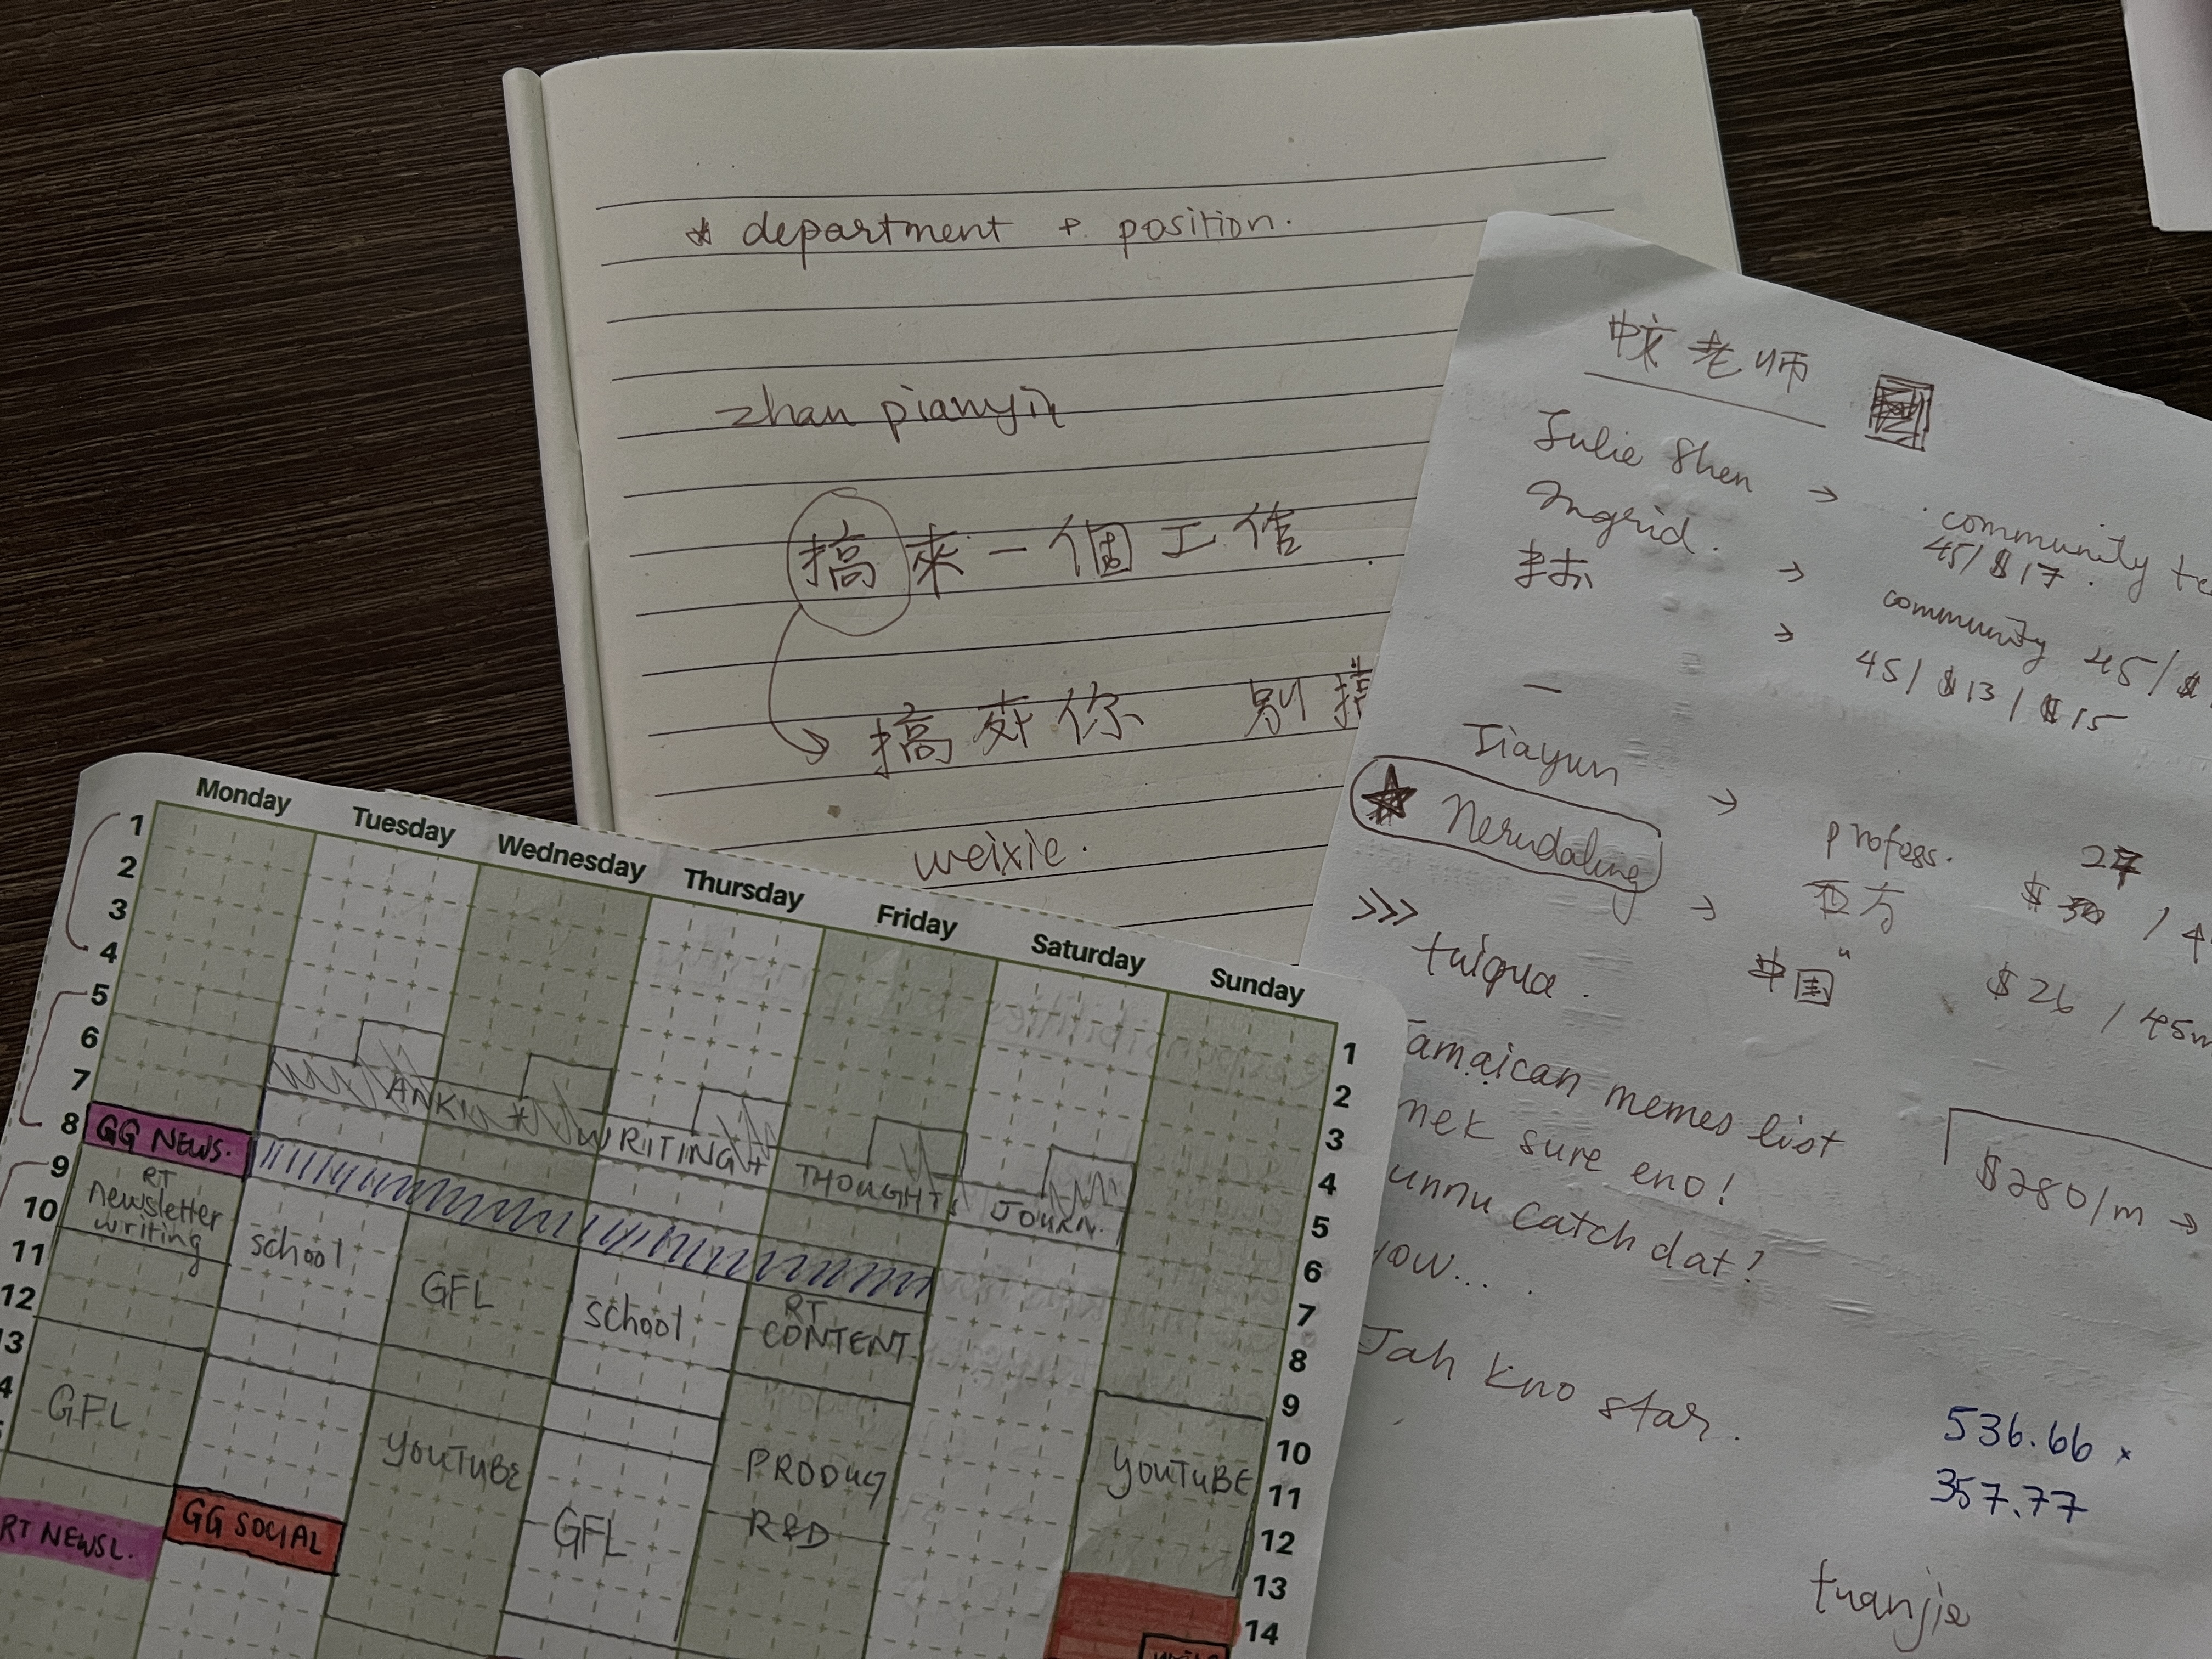 * department + position.
zhan pianyi
搞來一個工作
搞死你 别搞
weixie.
中文老师
Julie Shen → community
45/$17.
Ingrid. → community 45/$
→ 45/$13/$15
—
Jiayun → profess. 27
★ Nerudaling → 西方 $ /
>>> tuiqua. 中国" $26 / 45m
Jamaican memes list
mek sure eno!
unnu catch dat?
yow...
Jah kno star.
$280/m →
536.66 ×
357.77
tuanjie
Monday Tuesday Wednesday Thursday Friday Saturday Sunday
1 1
2 2
3 3
4 4
5 5
6 6
7 7
8 8
9 9
10 10
11 11
12 12
13 13
4 14
ANKI + WRITING + THOUGHTS JOURN.
GG NEWS.
RT
newsletter
writing
school
GFL
school
RT
CONTENT
GFL
YOUTUBE
GFL
PRODUCT
R&D
YOUTUBE
RT NEWSL.
GG SOCIAL